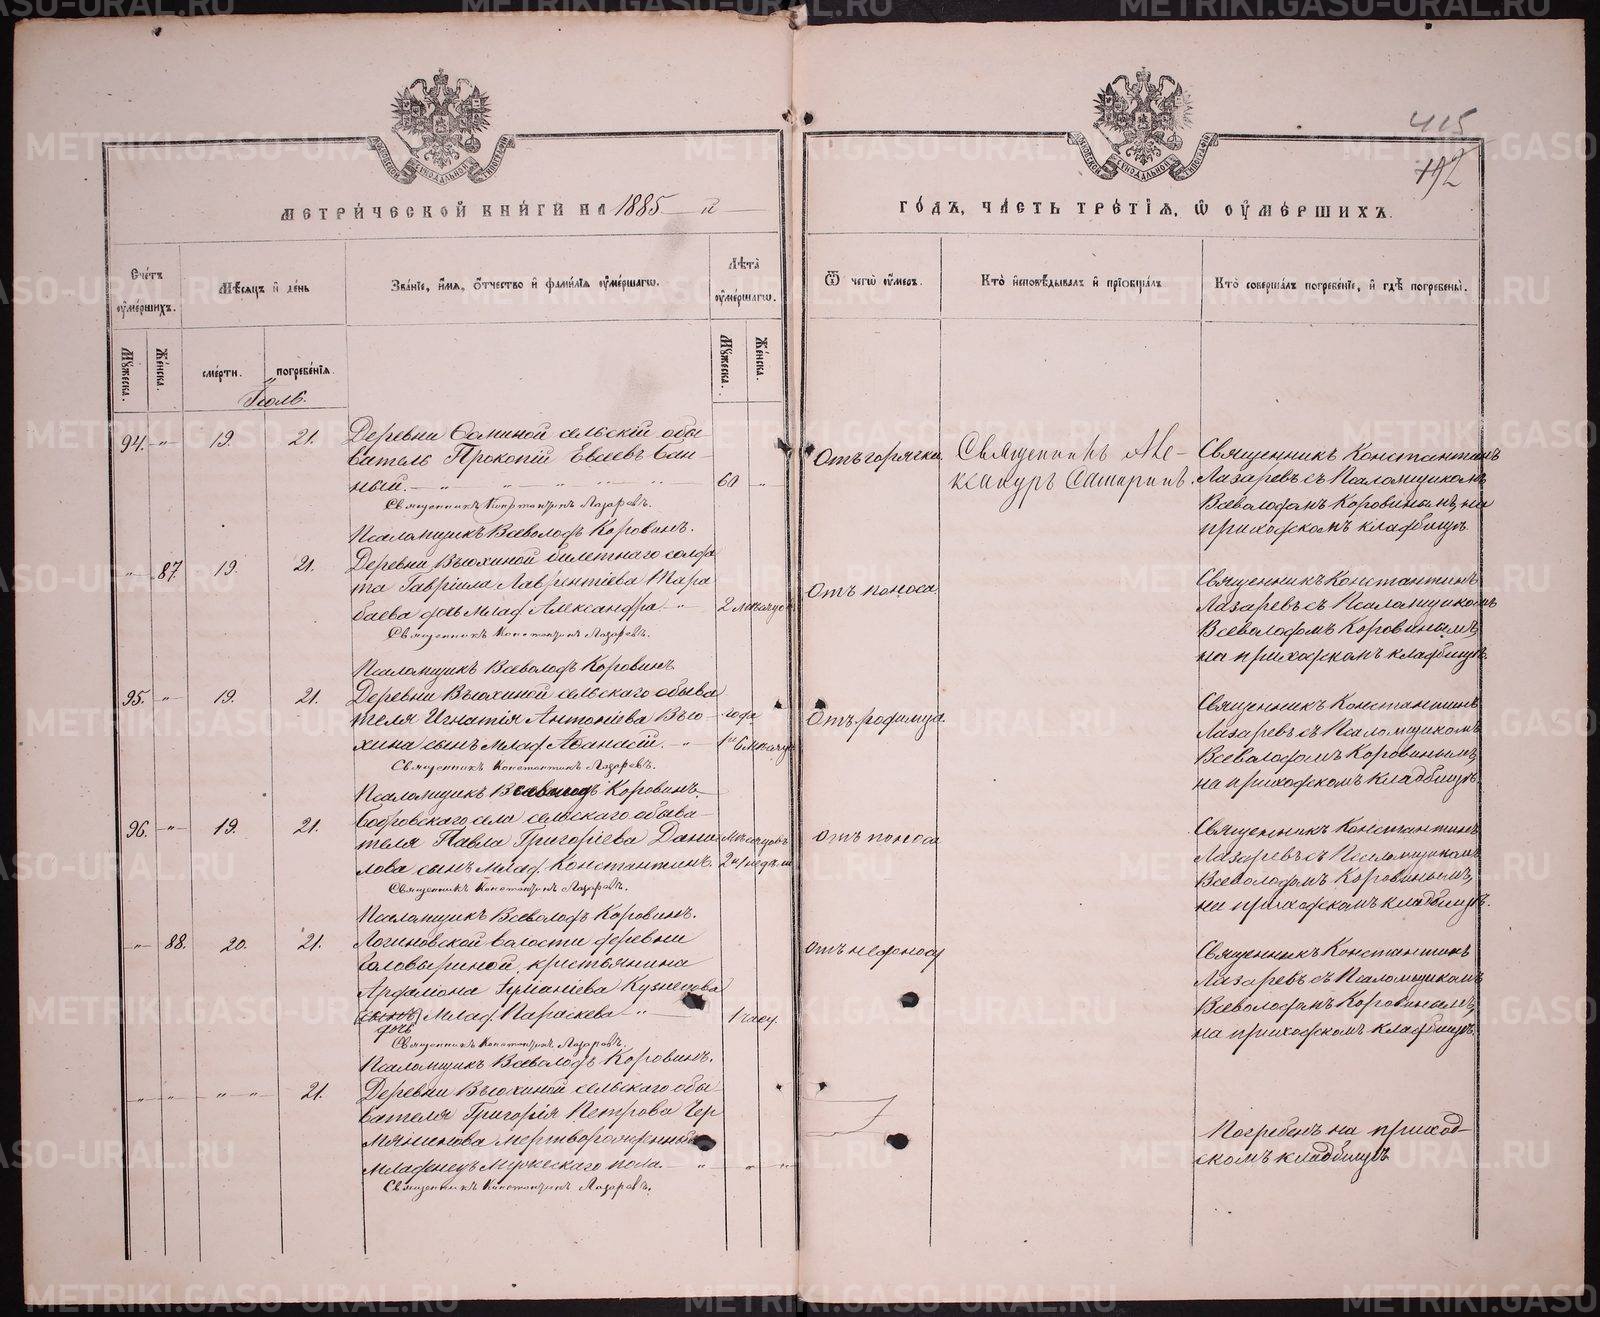 415
192
МЕТРИЧЕСКОЙ КНИГИ НА 1885 й
ГОДЪ, ЧАСТЬ ТРЕТІЯ, Ѡ ОУМЕРШИХЪ.
Счетъ оумершихъ.
Мѣсяцъ и день
Званіе, имя, отчество и фамилія оумершагѡ.
Лѣта оумершагѡ.
Ѿ чегѡ оумеръ.
Кто исповѣдывалъ и пріобщалъ
Кто совершалъ погребеніе, и гдѣ погребены.
Мужеска.
Женска.
смерти.
погребенія.
Мужеска.
Женска.
Іюль.
94. " 19. 21. Деревни Саниной сельскій обы-
ватель Прокопій Евсеевъ Сан-
ный. 60 "
Священникъ Константинъ Лазаревъ.
Псаломщикъ Всеволодъ Коровинъ.
Отъ горячки
Священникъ Але-
ксандръ Сатринъ.
Священникъ Константинъ
Лазаревъ съ Псаломщикомъ
Всеволодомъ Коровинымъ, на
приходскомъ кладбищѣ
" 87. 19. 21. Деревни Вьюхиной билетнаго солда
та Гавріила Лаврентіева Тара
баева дочь млад. Александра 2 мѣсяцов
Священникъ Константинъ Лазаревъ.
Псаломщикъ Всеволодъ Коровинъ
Отъ поноса
Священникъ Константинъ
Лазаревъ съ Псаломщикомъ
Всеволодомъ Коровинымъ,
на приходскомъ кладбищѣ.
95. " 19. 21. Деревни Вьюхиной сельскаго обыва
теля Игнатія Антоніева Вью- года
хина сынъ млад. Аѳанасій. 1 и 6 мѣсяцов
Священникъ Константинъ Лазаревъ.
Псаломщикъ Всеволодъ Коровинъ
Отъ родимца.
Священникъ Константинъ
Лазаревъ съ Псаломщикомъ
Всеволодомъ Коровинымъ,
на приходскомъ кладбищѣ.
96. " 19. 21. Бобровскаго села сельскаго обыва-
теля Павла Григоріева Дани- мѣсяцовъ
лова сынъ млад. Константинъ. 2 и 1 недѣли
Священникъ Константинъ Лазаревъ.
Псаломщикъ Всеволодъ Коровинъ.
отъ поноса
Священникъ Константинъ
Лазаревъ съ Псаломщикомъ
Всеволодомъ Коровинымъ,
на приходскомъ кладбищѣ.
" 88. 20. 21. Логиновской волости деревни
Головыриной, крестьянина
Арфамона Кузнецова
(сынъ) млад. Параскева " 1 часу.
дочь
Священникъ Константинъ Лазаревъ.
Псаломщикъ Всеволодъ Коровинъ.
отъ недоносу
Священникъ Константинъ
Лазаревъ съ Псаломщикомъ
Всеволодомъ Коровинымъ,
на приходскомъ кладбищѣ.
" " " " 21. Деревни Вьюхиной сельскаго обы-
вателя Григорія Петрова Чер
мянинова мертворожденный
младенецъ мужескаго пола. " " "
Священникъ Константинъ Лазаревъ.
Погребенъ на приход-
скомъ кладбищѣ